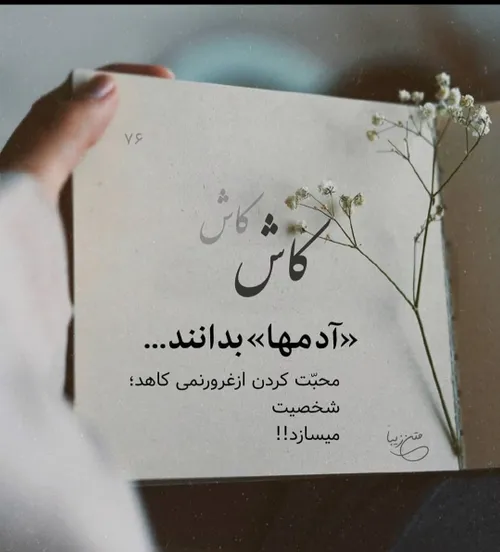 ۷۶
کاش
کاش
«آدمها» بدانند...
محبّت کردن ازغرورنمی کاهد؛
شخصیت
میسازد!!
متن زیبا